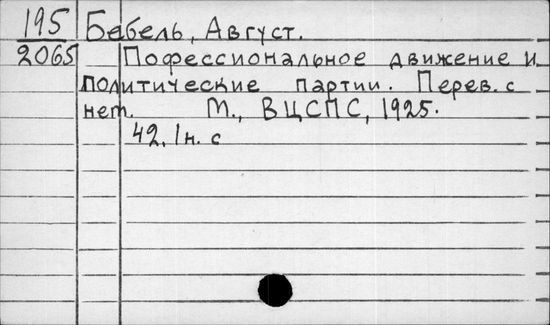 195 Бебель, Август.
2065 Пофессиональное движение и
политические партии. Перев. с
нем. М., ВЦСПС, 1925.
42, 1н. с